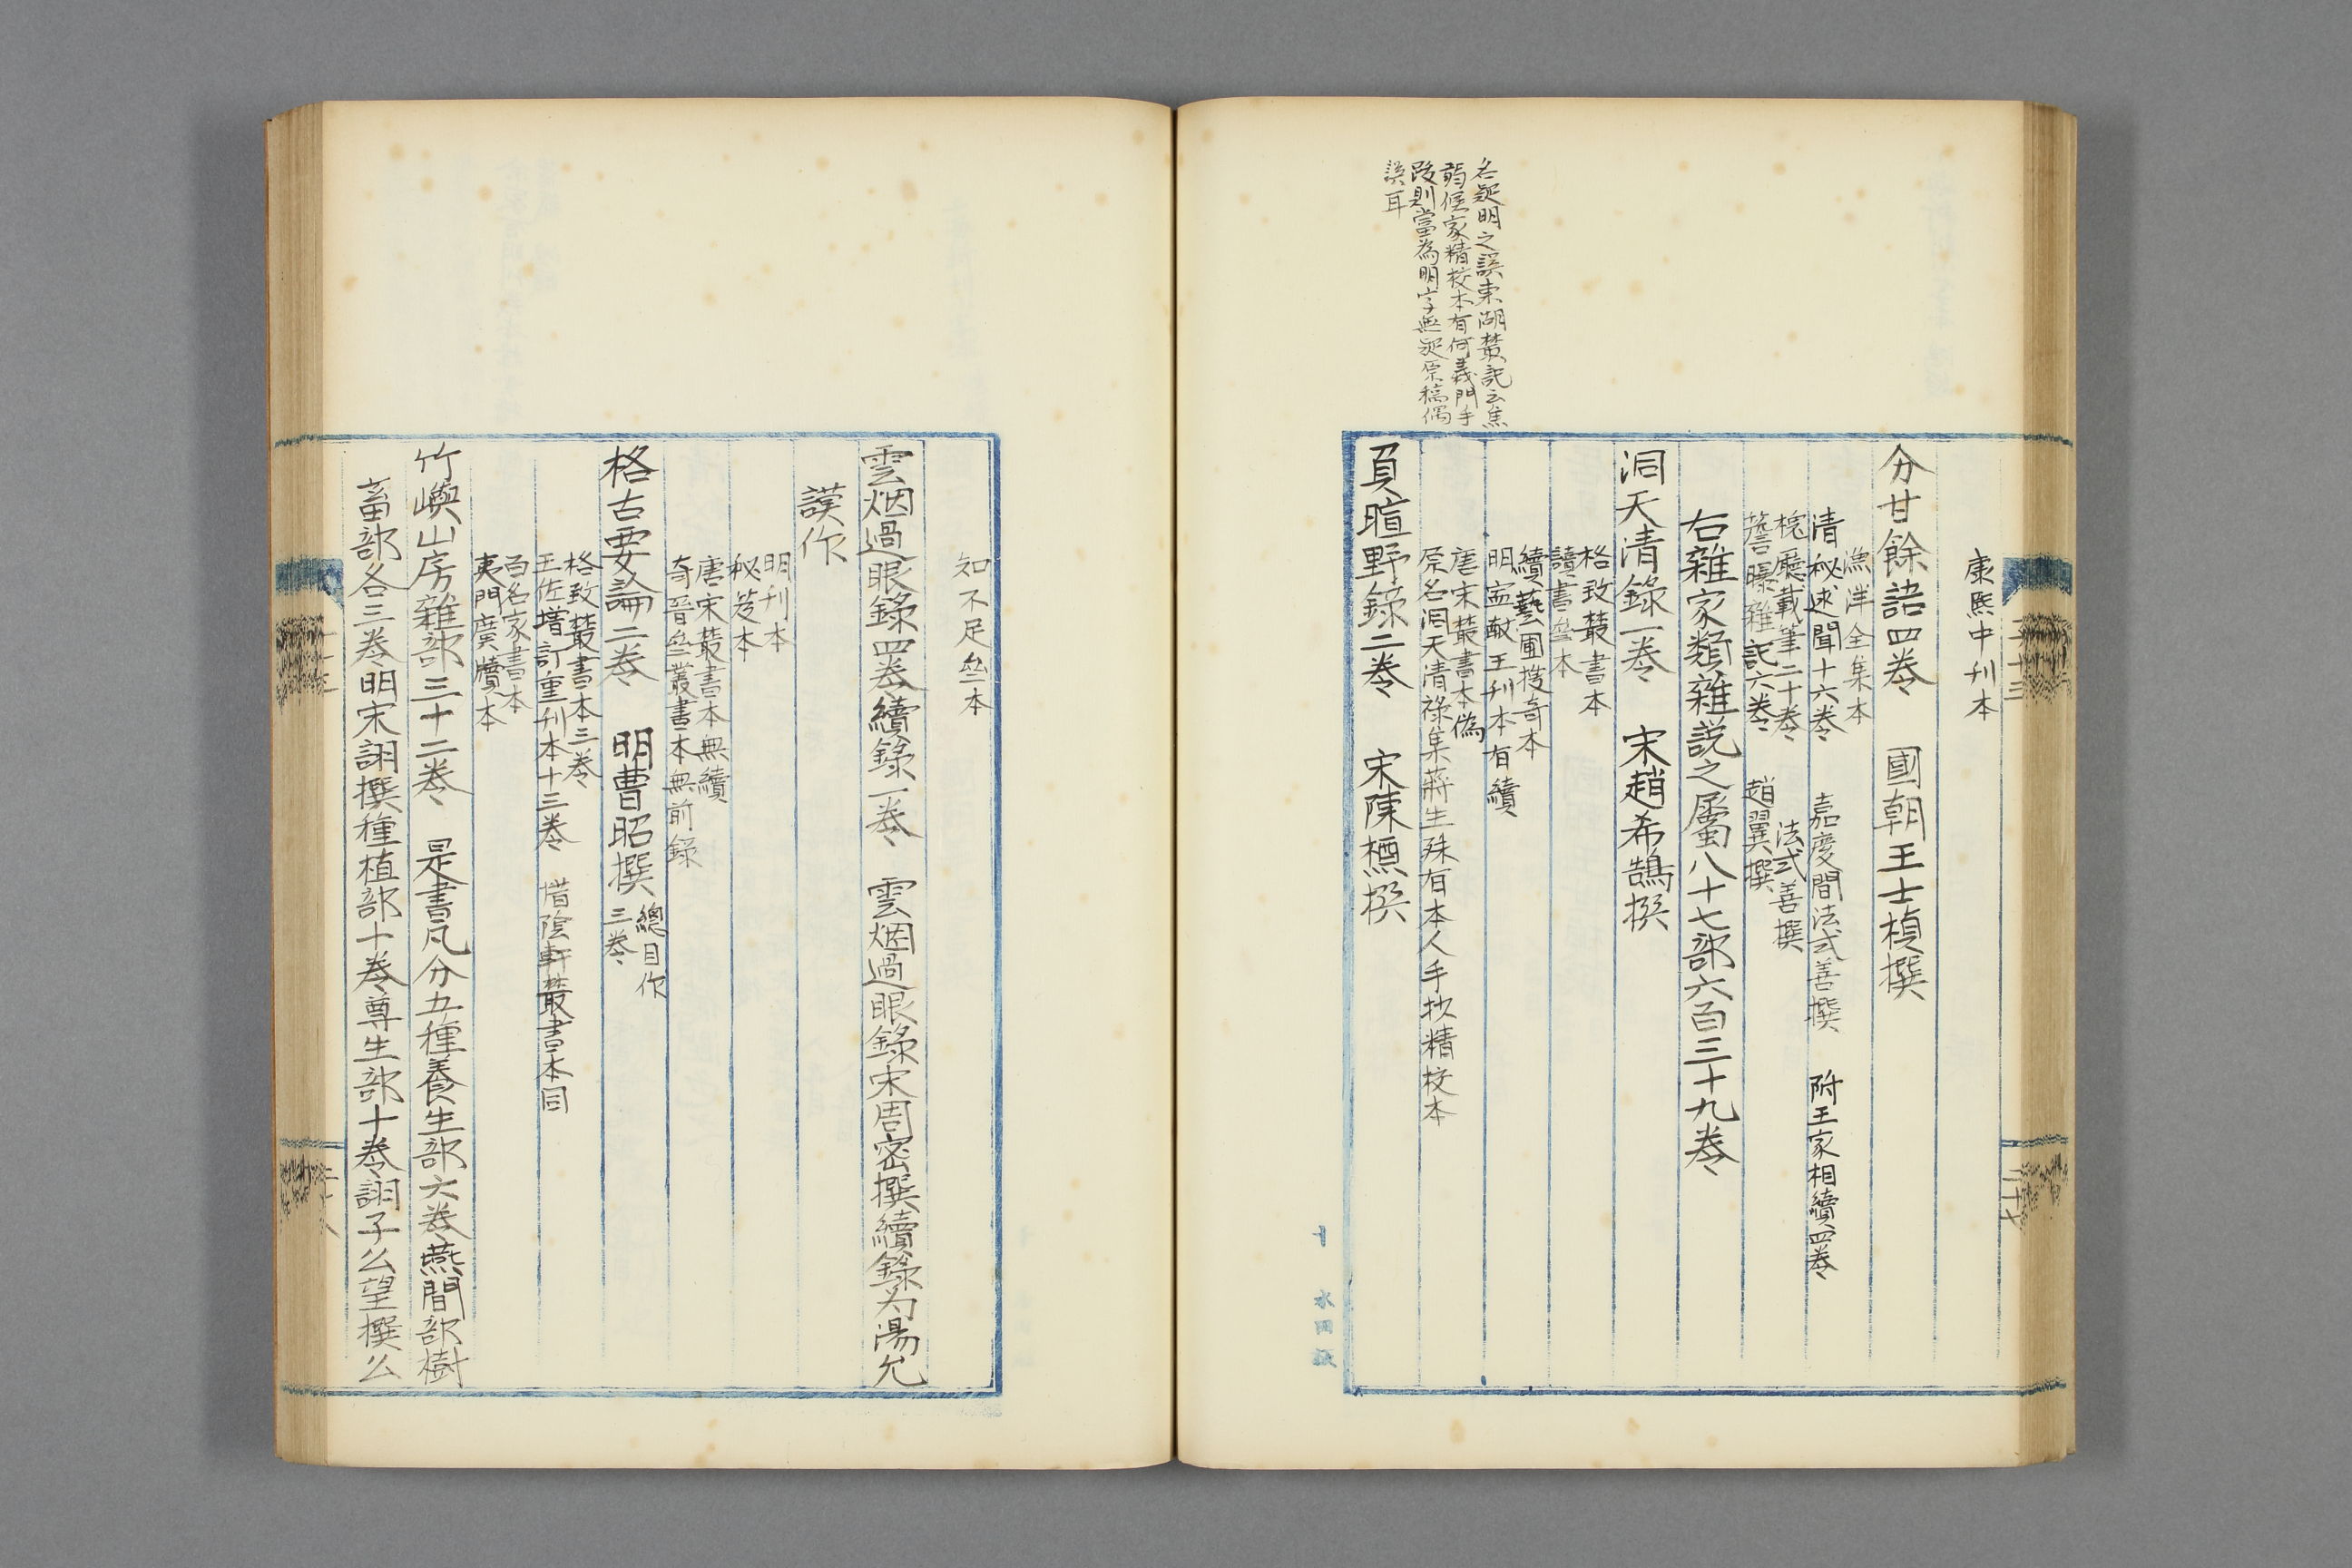 康熙中刊本
分甘餘話四卷　國朝王士楨撰
漁洋全集本
清秘述聞十六卷　嘉慶間法式善撰　附王家相續四卷
槐廳載筆二十卷　法式善撰
簷曝雜記六卷　趙翼撰
右雜家類雜說之屬八十七部六百三十九卷
洞天清錄一卷　宋趙希鵠撰
格致叢書本
讀書坐本
續藝圃搜奇本
明寧獻王刊本有續
唐宋叢書本偽
原名洞天清祿集蔣生殊有本人手抄精校本
負暄野錄二卷　宋陳槱撰
名疑明之誤東湖叢記云焦
弱侯家精校本有何義門手
跋則當為明字無疑原稿偶
誤耳
二十三
二十七
知不足坐本
雲烟過眼錄四卷續錄一卷　雲烟過眼錄宋周密撰續錄為湯允
謨作
明刊本
秘笈本
唐宋叢書本無續
奇晉坐叢書本無前錄
格古要論二卷　明曹昭撰　總目作
三卷
格致叢書本三卷
王佐增訂重刊本十三卷　惜陰軒叢書本同
百名家書本
夷門廣牘本
竹嶼山房雜部三十二卷　是書凡分五種養生部六卷燕閒部樹
畜部各三卷明宋詡撰種植部十卷尊生部十卷詡子公望撰公